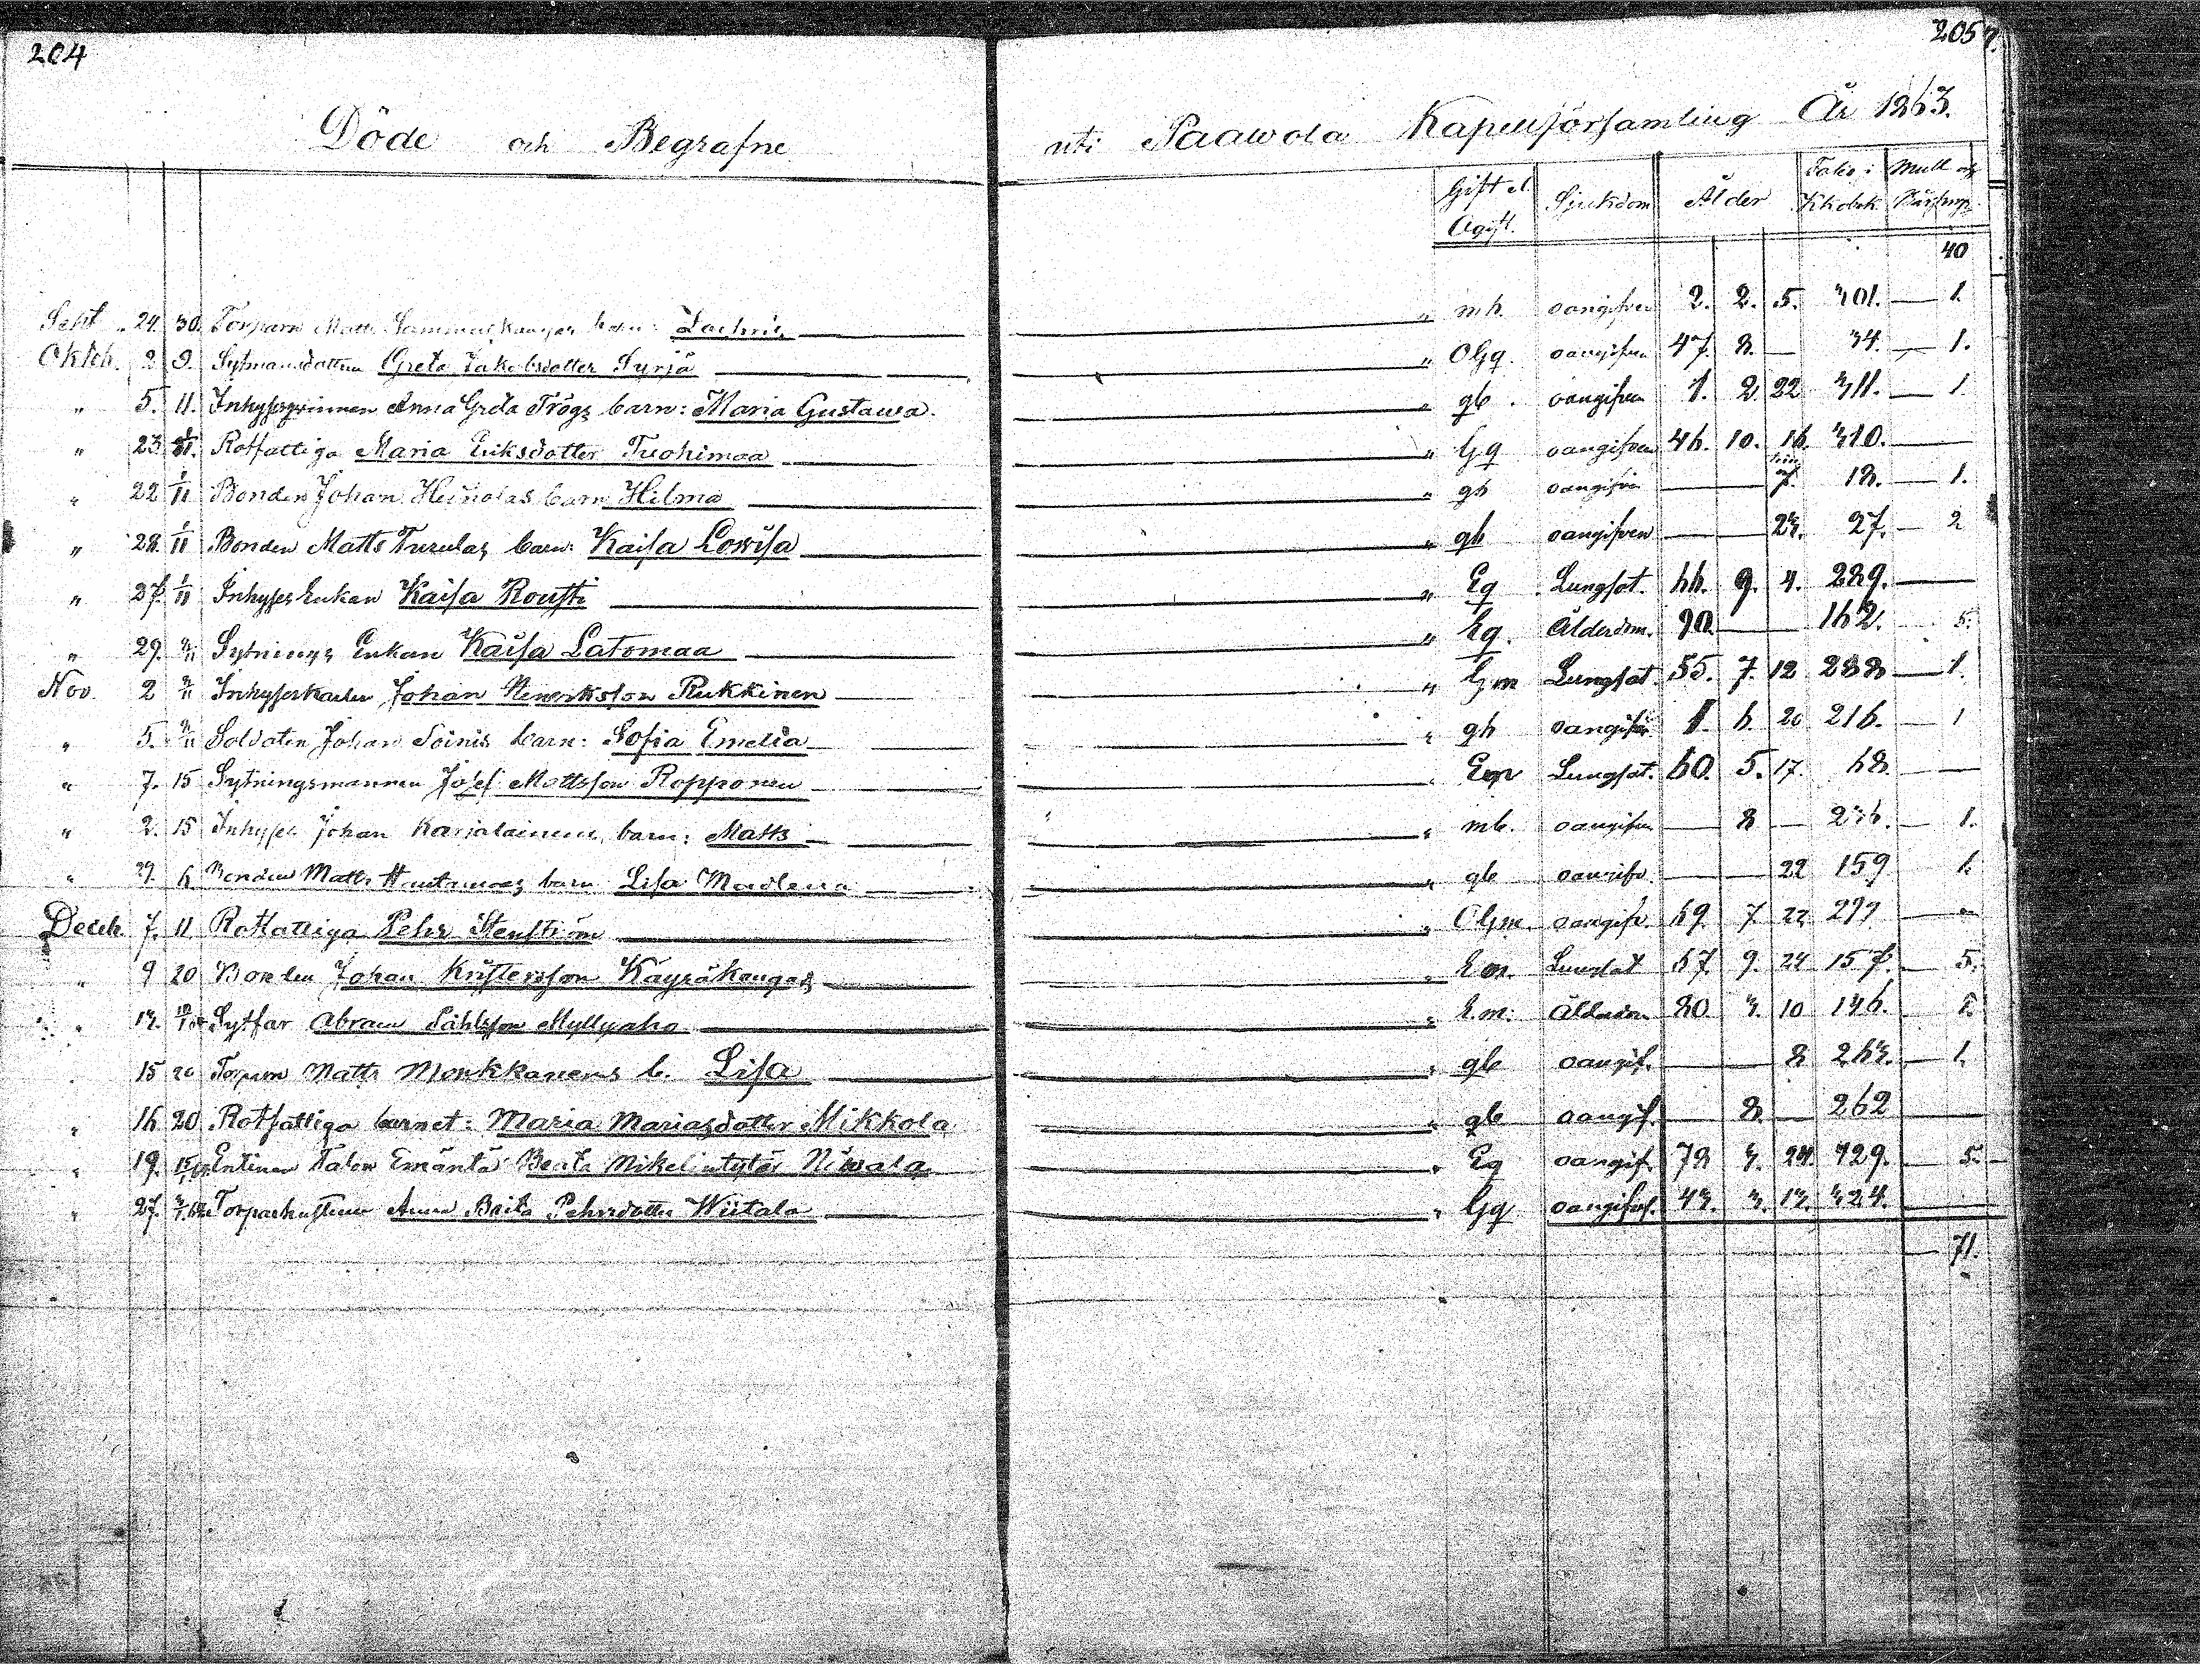 204
205
Döde och Begrafne uti Paawola Kapellförsamling År 1863.
Gift el. Ogift. Sjukdom Ålder Folio i Kkobok Mull och
40
Sept. 24. 30. Torparn Matts barn: Zachris " mb. oangifven 2. 2. 5. 301. — 1.
Oktob. 2 9. Sytmansdottern Greta Jakobsdotter Syrjä " OGq. oangifven 47. 8. — 34. — 1.
" 5. 11. Inhysesqvinnan Anna Greta Trögs barn: Maria Gustava. " qb. oangifven 1. 2. 22 311. — 1
" 23. Rotfattiga Maria Eriksdotter Tuohimaa " Gq oangifven 46. 10. 16. 310. —
" 22 1/11 Bonden Johan Heinolas barn Hilma " qb oangifven — 18. — 1.
" 28. 1/11 Bonden Matts Turulas barn: Kaisa Lovisa " qb oangifven — 23. 27. — 2
" 27. 1/11 InhysesEnkan Kaisa Rousti " Eq Lungsot. 66. 9. 4. 289. —
" 29. Sytnings Enkan Kaisa Latomaa " Eq. Ålderdom. 90. — 162. 5.
Nov. 2 Inhyseskarlen Johan Henriksson Rukkinen " Gm Lungsot. 55. 7. 12 288 — 1.
" 5. Soldaten Johan Soinis barn: Sofia Emelia " qb oangifven 1. 6. 20 216. — 1
" 7. 15 Sytningsmannen Josef Mattsson Ropponen " Em Lungsot. 60. 5. 17. 68. —
" 2. 15 Inhyses Johan Karjalainens barn: Matts " mb. oangifven — 8 — 236. — 1.
" 29. 6 Bonden Matts barn Lisa Madlena " qb oangifv. — 22 159
Deceb. 7. 11. Rotfattiga Pehr Stenström " OGm. oangifv. 69 7 22 —
" 9 20 Bonden Johan Kristersson Käyräkangas " Em. Lungsot 67. 9. 24 157. — 5.
" 13. Sytfar Abram Myllyaho " E.m. Ålderdom 80. 3. 10 136.
15 20 Torparn Matts Monkkanens b. Lisa " qb oangif. — 8 263. — 1.
" 16 20 Rotfattiga barnet: Maria Mariasdotter Mikkola " qb oangif. — 8. — 262 —
" 19. Entinen Talon Emäntä Beata Mikelintytär Niwala " Eq oangif. 78 3. 24. 129. — 5. —
" 27. Torparehustrun Anna Brita Pehrsdotter Wiitala " Gq oangifvet. 43. 3. 13. 324. —
— 71.